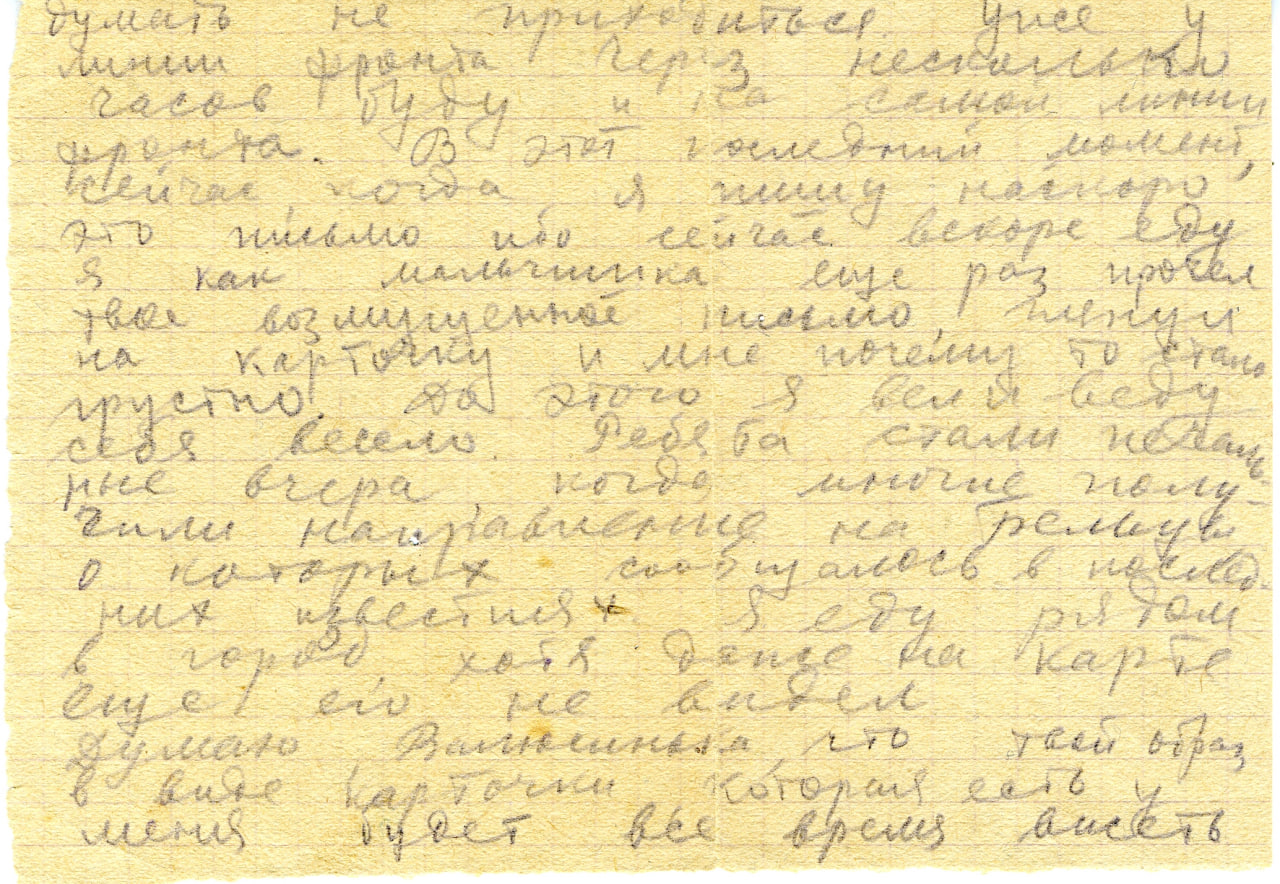 думать не приходиться. Уже у
линии фронта. Через несколько
часов буду и на самой линии
фронта. В этот последний момент,
сейчас, когда я пишу наскоро,
это письмо ибо сейчас вскоре еду
я как мальчишка еще раз прочел
твое возмущенное письмо, глянул
на карточку и мне почему то стало
грустно. До этого я вел и веду
себя весело. Ребята стали печаль-
ные вчера, когда многие полу-
чили направление на
о которых сообщалось в послед-
них известиях. Я еду рядом
в город, хотя даже на карте
еще его не видел
Думаю Валюсинька, что твой образ
в виде карточки которая есть у
меня будет все время висеть